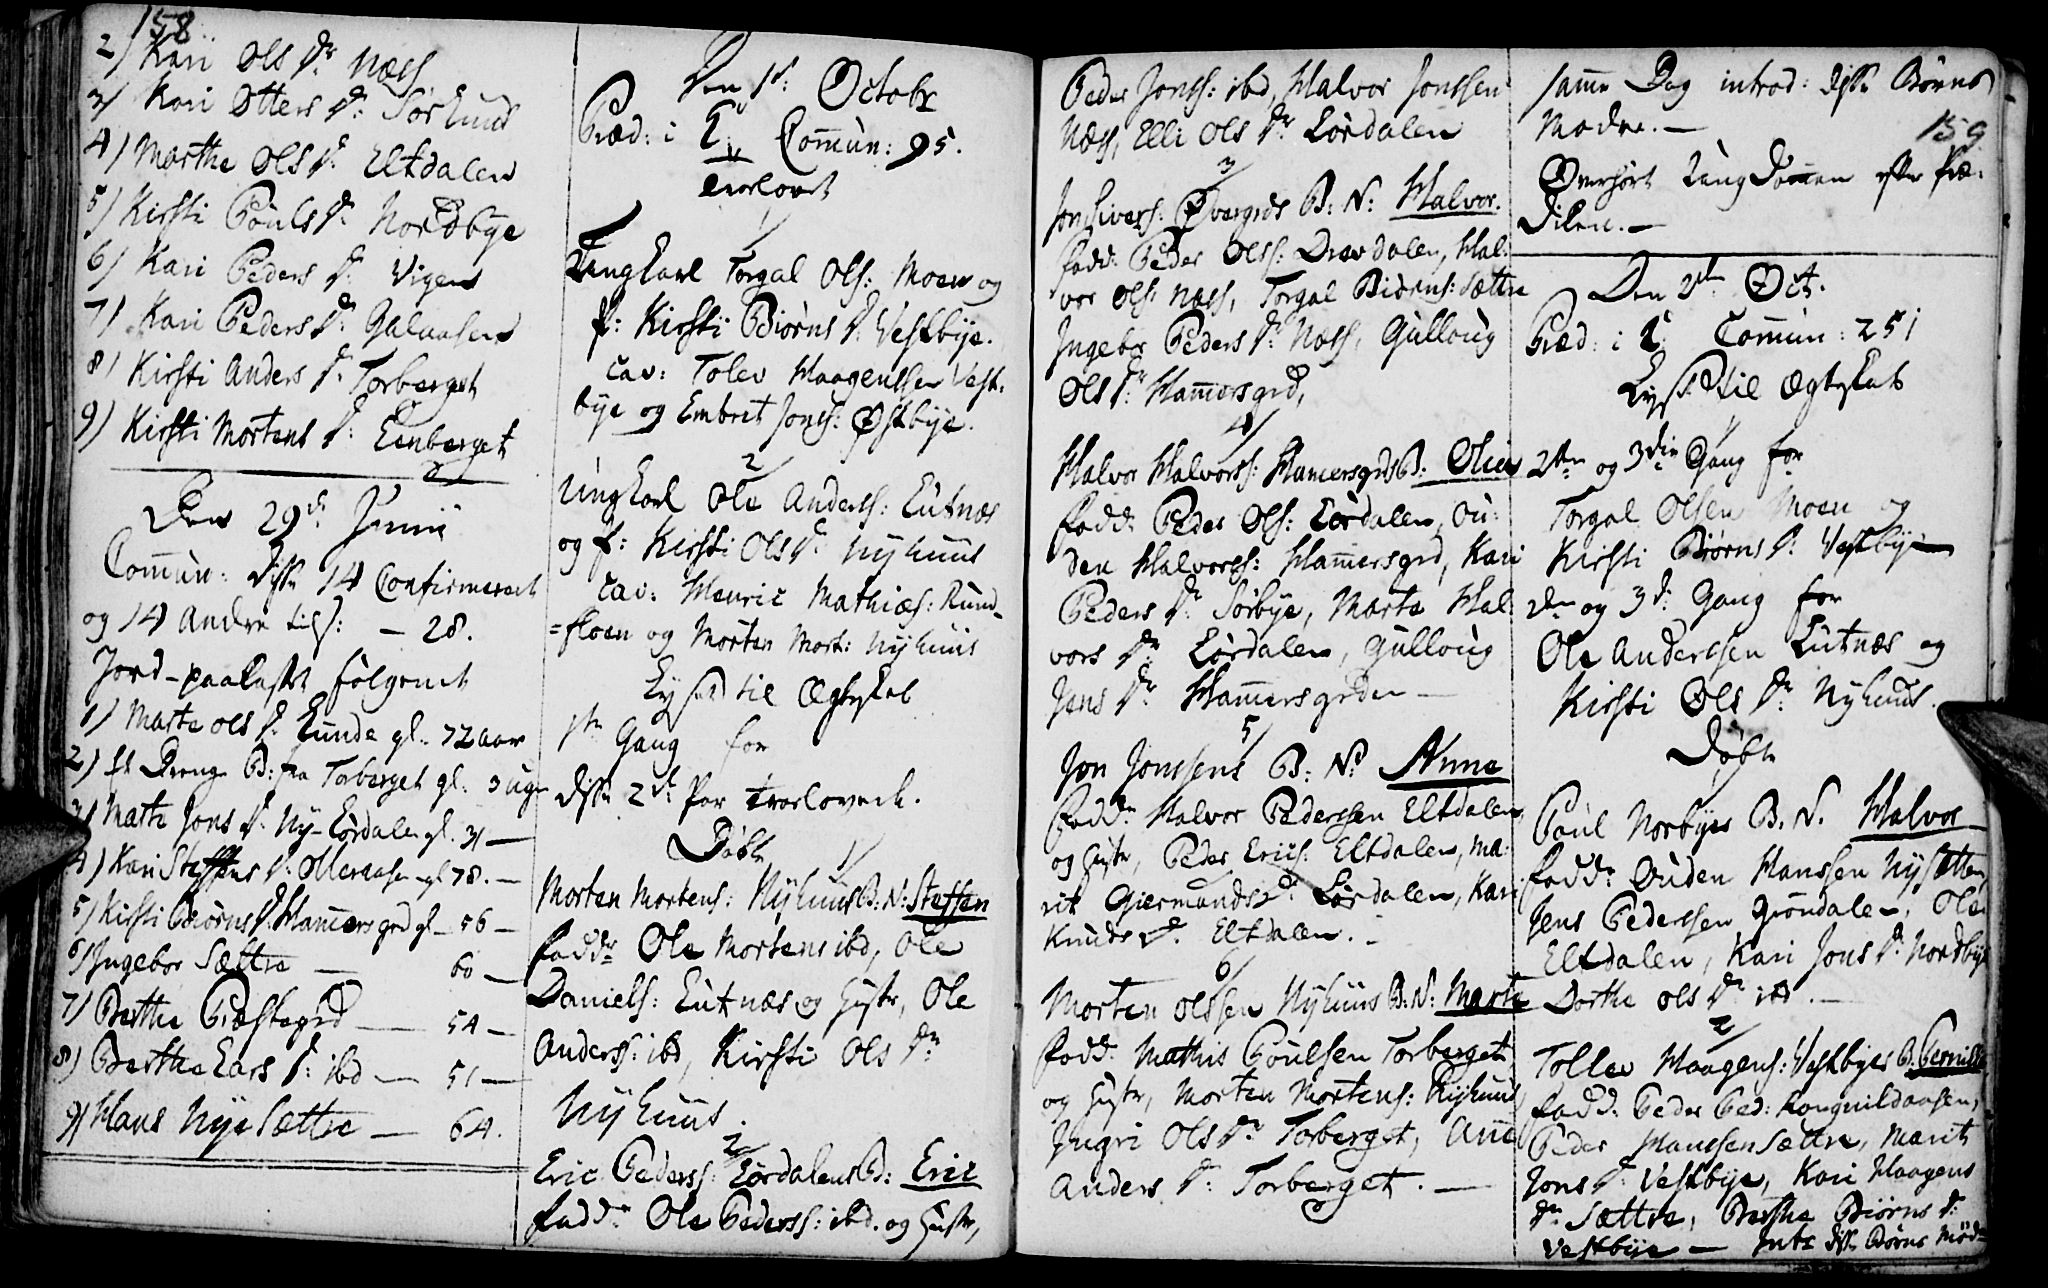 158
2) Kari Ols Dr. Næss
3) Kari Otters Dr: Sørhuus
4) Marthe Ols Dr. Eltdalen
5) Kirsti Pouls Dr. Nordbye
6) Kari Peders Dr: Vigen
7) Kari Peders Dr. Galaasen
8) Kirsti Anders Dr. Torberget
9) Kirsti Mortens Dr: Enberget
Den 29de Junii
Com̅un: disse 14 Confirmerede
og 14 Andre tils: — 28.
Jord-paakastet følgende
1) Marte Ols Dr. Lunde gl. 72 aar
2) et Drenge B: fra Torberget gl. 3 uger
3) Marte Jons Dr. Ny-Lørdalen gl. 31 —
4) Kari Steffens Dr. Moraasen gl 78. —
5) Kirsti Biørns Dr. Ham̅ersgrd gl — 56 —
6) Ingebor Sættre — 60 —
7) Berthe Præstegrd — 54 —
8) Berthe Lars Dr: ibd — 51 —
9) Hans Nye Sættre — 64.
Den 1te October
Præd: i T. Com̅un: 95.
Trolovet
1/
Ungkarl Torgal Ols: Moen og
P: Kirsti Biørns Dr. Vestbye.
Cav: Tolev Haagenssen Vest-
bye og Embret Jons: Østbye.
2/
Ungkarl Ole Anderss: Lutnæs
og P: Kirsti Ols Dr. Nyhuus
Cav: Henric Mathiæs: Rund-
=floen og Morten Mort: Nyhuus
Lyst til Ægteskab
1te Gang for
disse 2de Par trolovede.
Døbte
1/
Morten Mortens: Nyhuus B: N: Steffen
fadd: Ole Mortens ibd, Ole
Daniels: Lutnæs og Hustr, Ole
Anderss: ibd, Kirsti Ols Dr
Nyhuus.
2/
Eric Pederss: Lørdalens B: Eric
fadd: Ole Pederss: ibd. og Hustr,
Peder Jonss: ibd, Halvor Jonssen
Næss, Elli Ols Dr. Lørdalen
3/
Jon Sivers: Øvergrds B: N: Halvor.
fadd: Peder Olss: Drevdalen, Hal-
vor Ols: Næss, Torgal Biørns: Sættre
Ingebor Peders Dr: Næss, Gulloug
Ols Dr: Ham̅ersgrd,
4/
Halvor Halvorss: Ham̅ersgrds B: Olia
fadd: Peder Ols: Lørdalen, Ou-
den Halvorss: Ham̅ersgrd, Kari
Peders Dr. Sørbye, Marte Hal-
vors Dr: Lørdalen, Gulloug
Jens Dr Ham̅ersgrden —
5/
Jon Jonssens B: N: Anne
fadd: Halvor Pederssen Eltdalen
og Hustr, Peder Erics: Eltdalen, Ma-
rit Giermunds Dr. Lørdalen, Kari
Knuds Dr. Eltdalen. —
6/
Morten Olssen Nyhuus B: N: Marte
fadd: Mathis Poulsen Torberget
og Hustr, Morten Mortens: Nyhuus
Ingri Ols Dr. Torberget, Anne
Anders Dr: Torberget. —
sam̅e Dag introd: disse Børns
Mødre. —
159
Overhørt Ungdom̅en efter Præ-
diken. —
Den 2den Oct.
Præd: i T. Com̅un: 251
Lyst til Ægteskab
1/
2den og 3die Gang for
Torgal Olsen Moen og
Kirsti Biørns Dr. Vestbye
2den og 3de Gang for
Ole Anderssen Lutnæs og
Kirsti Ols Dr. Nyhuus.
Døbte
1/
Poul Norbyes B. N. Halvor
fadd: Ouden Hanssen Nysætten,
Jens Pederssen Grøndalen, Ole
Eltdalen, Kari Jons Dr. Nordbye
Dorthe Ols Dr. ibd. —
2/
Tollev Haagens: Vestbyes B. Pernille
fadd: Peder Ped:
Peder Hanssen Sættre, Marit
Jons Dr. Vestbye, Kari Haagens
Dr. Sættre, Berthe Biørns Dr.
Vestbye — Intr disse Børns Mød-